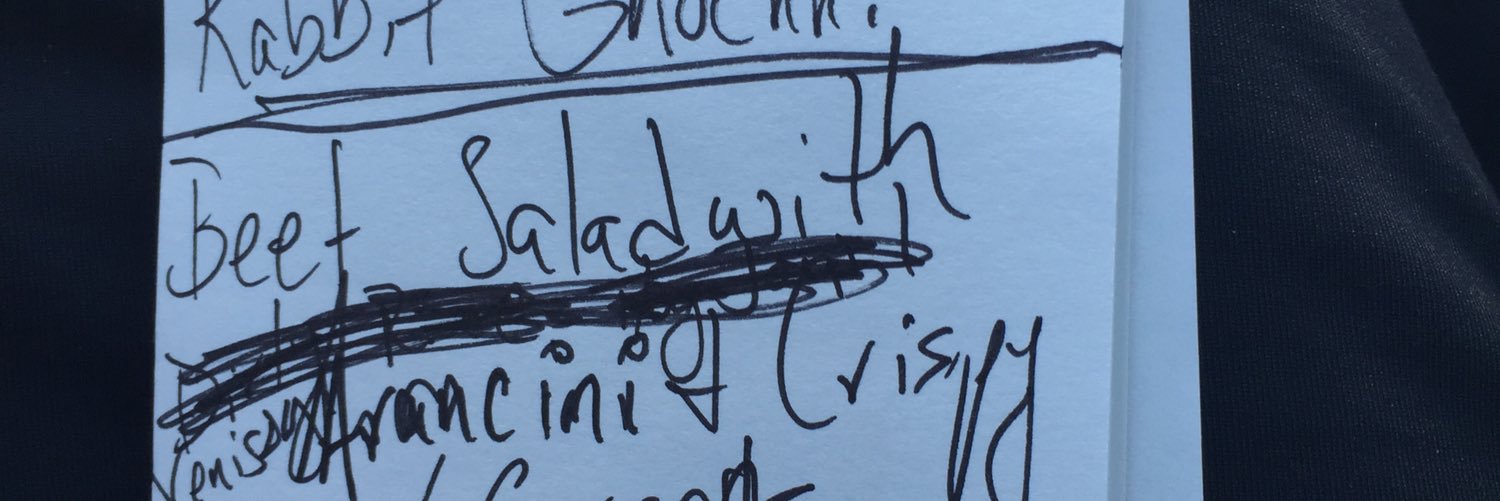 Rabbit Gnocchi
Beef Salad with
Venison Arancini & Crispy